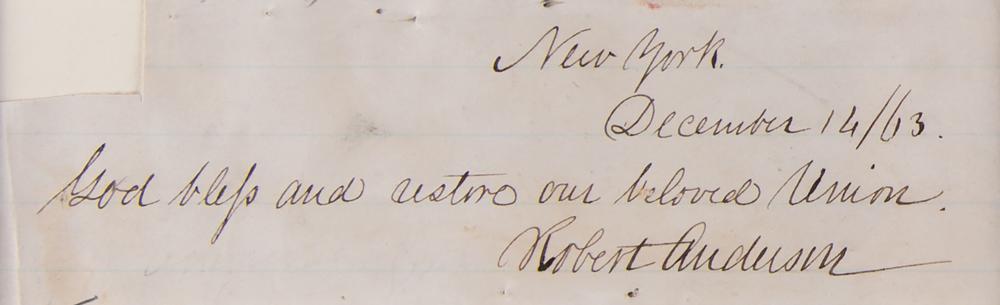 New York.
December 14/63.
God bless and restore our beloved Union.
Robert Anderson